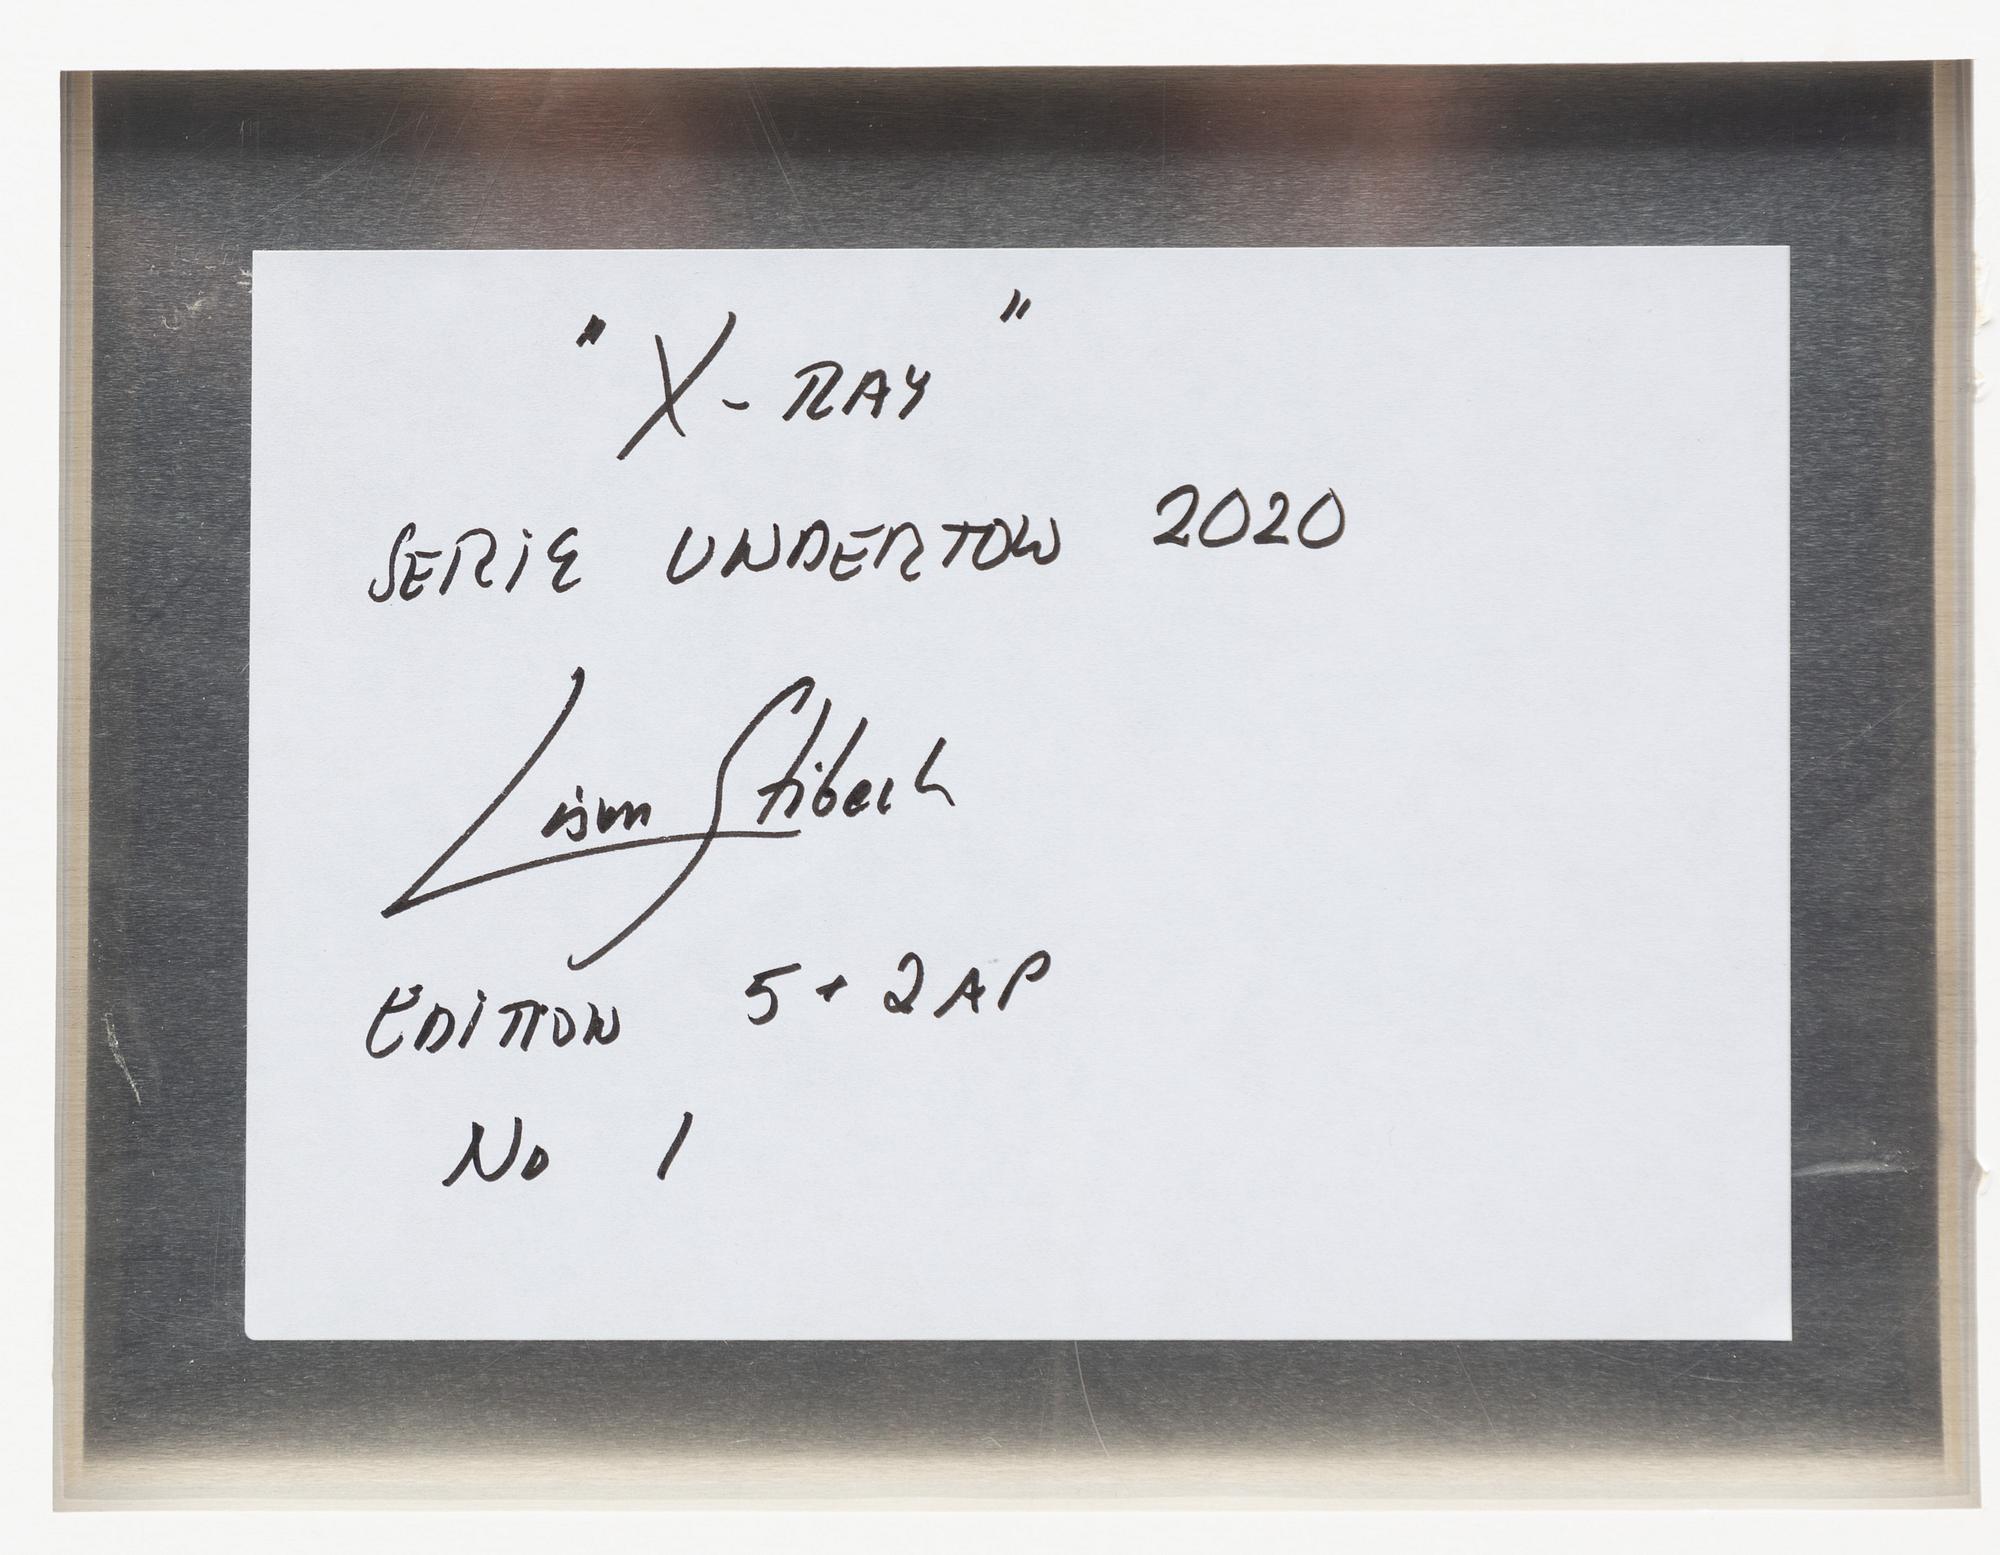 "X-RAY"
SERIE UNDERTOW 2020
EDITION 5+2AP
No 1